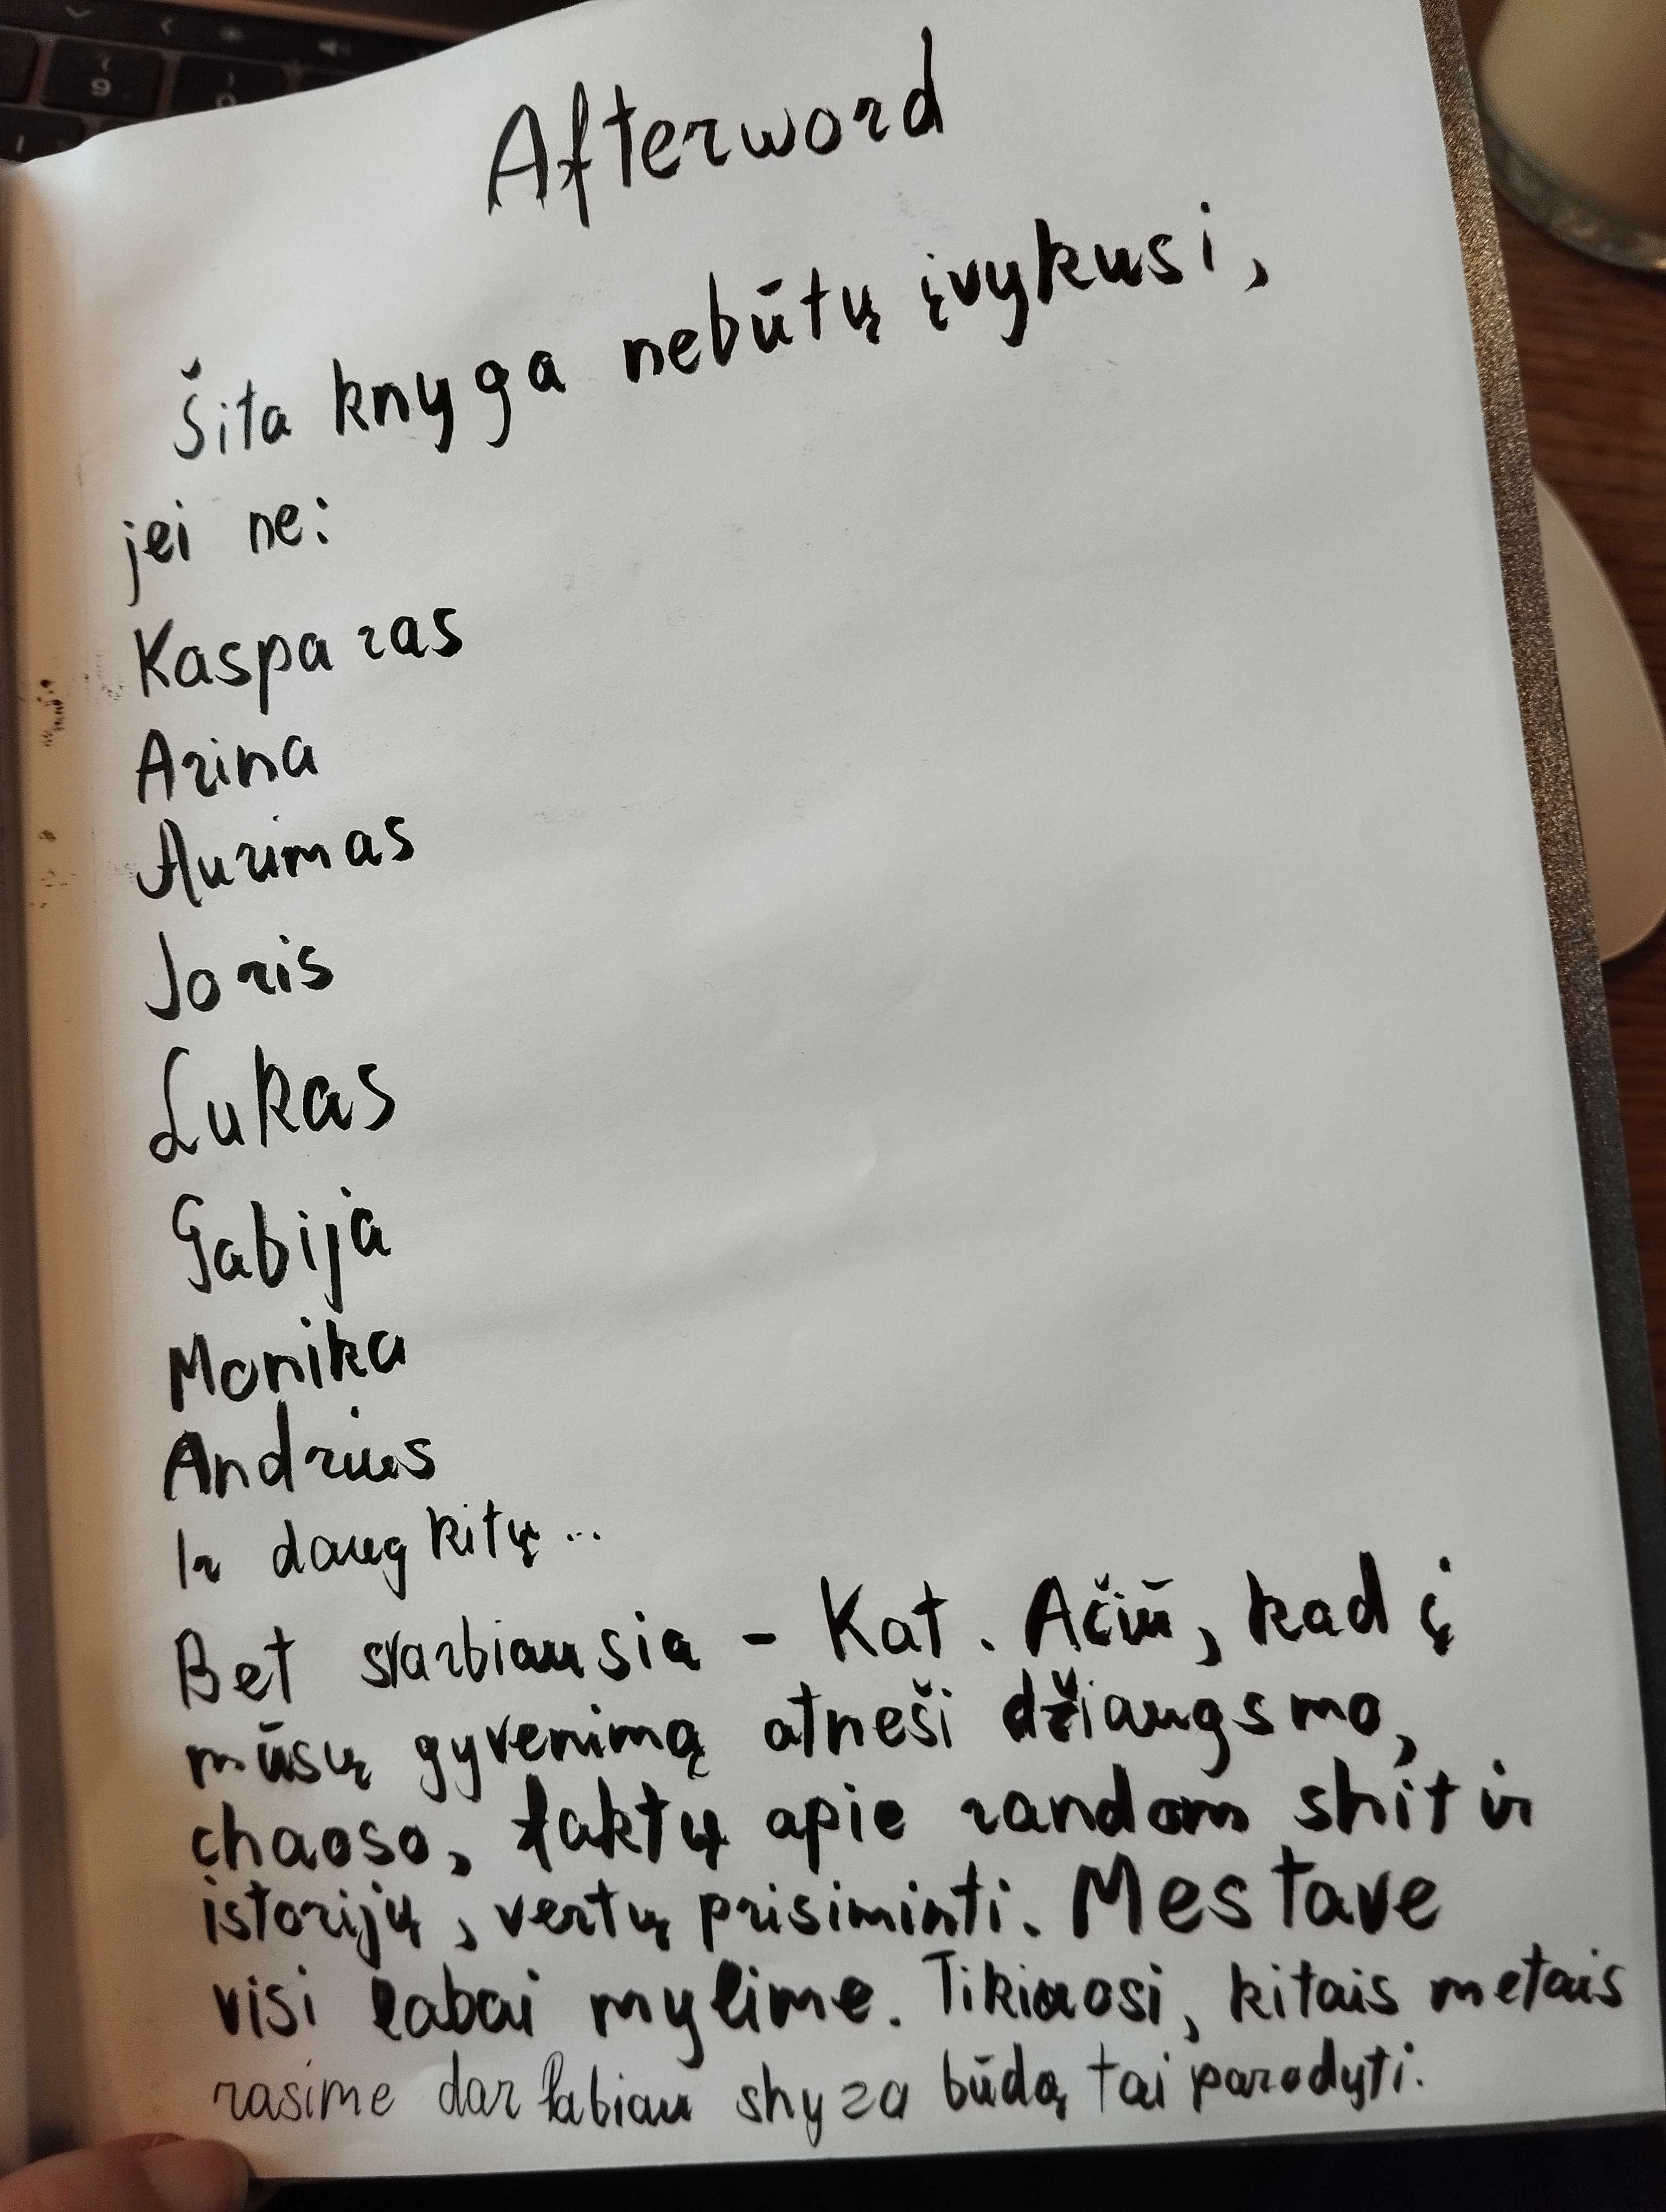 Afterword
Šita knyga nebūtų įvykusi,
jei ne:
Kasparas
Arina
Aurimas
Joris
Lukas
Gabija
Monika
Andrius
Ir daug kitų...
Bet svarbiausia - Kat. Ačiū, kad į
mūsų gyvenimą atneši džiaugsmo,
chaoso, faktų apie random shit ir
istorijų, vertų prisiminti. Mes tave
visi labai mylime. Tikiuosi, kitais metais
rasime dar labiau shyza būdą tai parodyti.